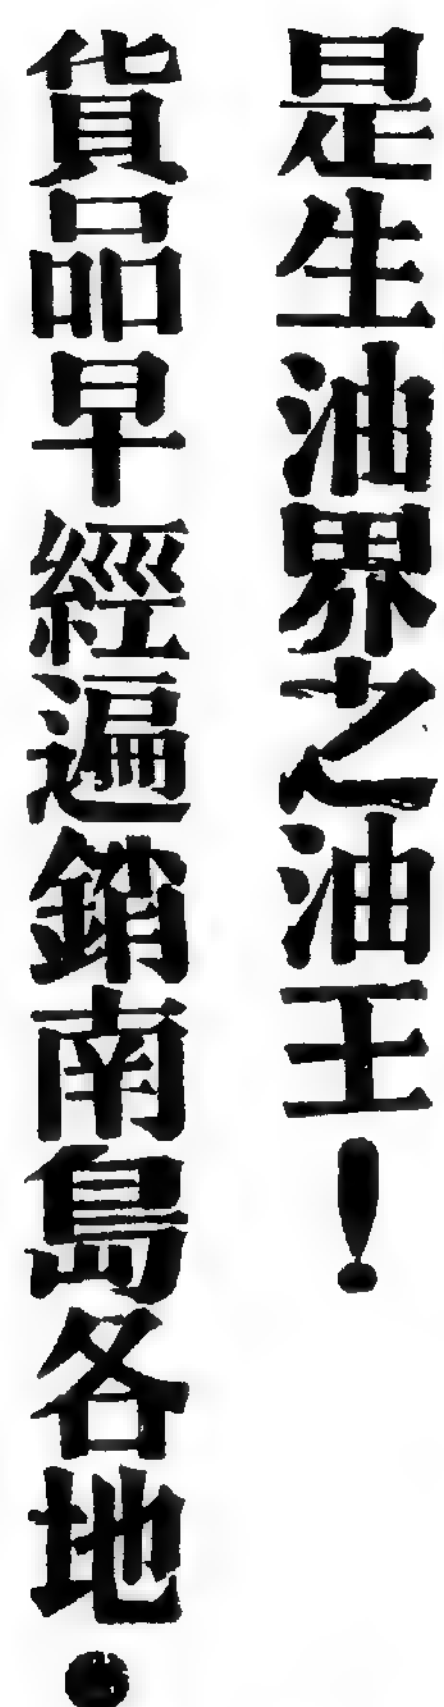 是生油界之油王！
貨品早經遍銷南島各地。